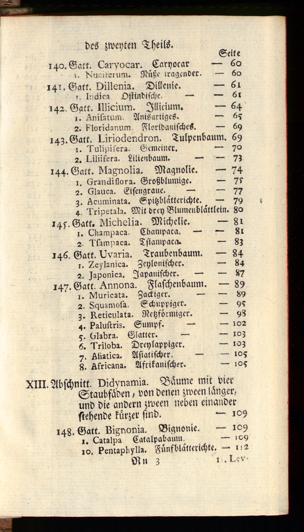 des zweyten Theils.
Seite
140. Gatt. Caryocar. Caryocar — 60
1. Nuciferum. Nüße tragender. — 60
141. Gatt. Dillenia. Dillenie. — 61
1. Indica Ostindische. — 61
142. Gatt. Illicium. Illicium. — 64
1. Anisatum. Anisartiges. — 65
2. Floridanum. Floridanisches. — 69
143. Gatt. Liriodendron. Tulpenbaum. 69
1. Tulipifera. Gemeiner. — 70
2. Liliifera. Lilienbaum. — 73
144. Gatt. Magnolia. Magnolie. — 74
1. Grandiflora. Großblumige. — 75
2. Glauca. Eisengraue. — 77
3. Acuminata. Spitzblätterichte. — 79
4. Tripetala. Mit drey Blumenblättlein. 80
145. Gatt. Michelia. Michelie. — 81
1. Champaca. Champaca. — 81
2. Tsampaca. Tsiampaca. — 83
146. Gatt. Uvaria. Traubenbaum. — 84
1. Zeylanica. Zeylonischer. — 84
2. Japonica. Japanischer. — 87
147. Gatt. Annona. Flaschenbaum. — 89
1. Muricata. Zackiger. — 89
2. Squamosa. Schuppiger. — 95
3. Reticulata. Netzförmiger. — 98
4. Palustris. Sumpf. — 102
5. Glabra. Glatter. — 103
6. Triloba. Dreylappiger. — 103
7. Asiatica. Asiatischer. — 105
8. Africana. Afrikanischer. — 105
XIII. Abschnitt. Didynamia. Bäume mit vier
Staubfäden, von denen zween länger,
und die andern zween neben einander
stehende kürzer sind. — 109
148. Gatt. Bignonia. Bignonie. — 109
1. Catalpa Catalpabaum. — 109
10. Pentaphylla. Fünfblätterichte. — 112
Nn 3
11. Lev-